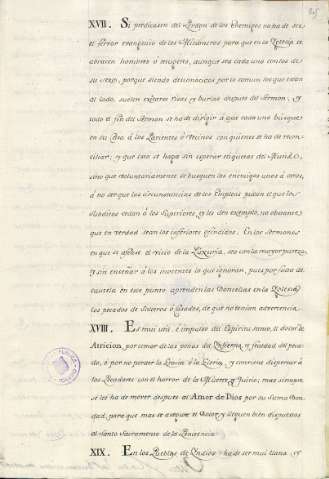 XVII. Si predicasen del Amor de los Enemigos no ha de ser
el fervor tranquilo de los Misioneros para que en la Iglesia se
abracen hombres o mugeres, aunque sea cada uno con los de
su sexo, porque siendo de lo comun los que estan
al lado, suelen excitar risas y burlas despues del Sermon, y
todo el fin del Sermon se ha de dirigir á que cada uno busque
en su Casa á los Parientes ó Vecinos con quienes se ha de recon-
ciliar, y que esto se haga sin esperar etiquetas del Mundo,
sino que voluntariamente se busquen los enemigos unos á otros,
á no ser que las circunstancias de los Empleos piden el que los
Subditos cedan á los Superiores, y les den exemplo, no obstante
que en verdad sean los inferiores ofendidos. En los Sermones
en que se afeare el vicio de la Luxuria, sea con la mayor pureza,
y sin enseñar á los inocentes lo que ignoran, pues por falta de
cautela en este punto aprenden las Doncellas en la Iglesia
los pecados de Solteros ó Casados, de que no tenian advertencia.
XVIII. Es mui util, é impulso del Espiritu Santo, el dolor de
Atricion, por temor de las penas del Infierno, y fealdad del peca-
do, ó por no perder la Gracia ó la Gloria, y conviene dispertar á
los Pecadores con el horror de la Muerte, y Juicio; mas siempre
se les ha de mover despues al Amor de Dios por su suma Bon-
dad, para que mas se asegure el Dolor, y lleguen bien dispuestos
al Santo Sacramento de la Penitencia.
XIX. En los Pueblos de Indios ha de ser mui llana, y